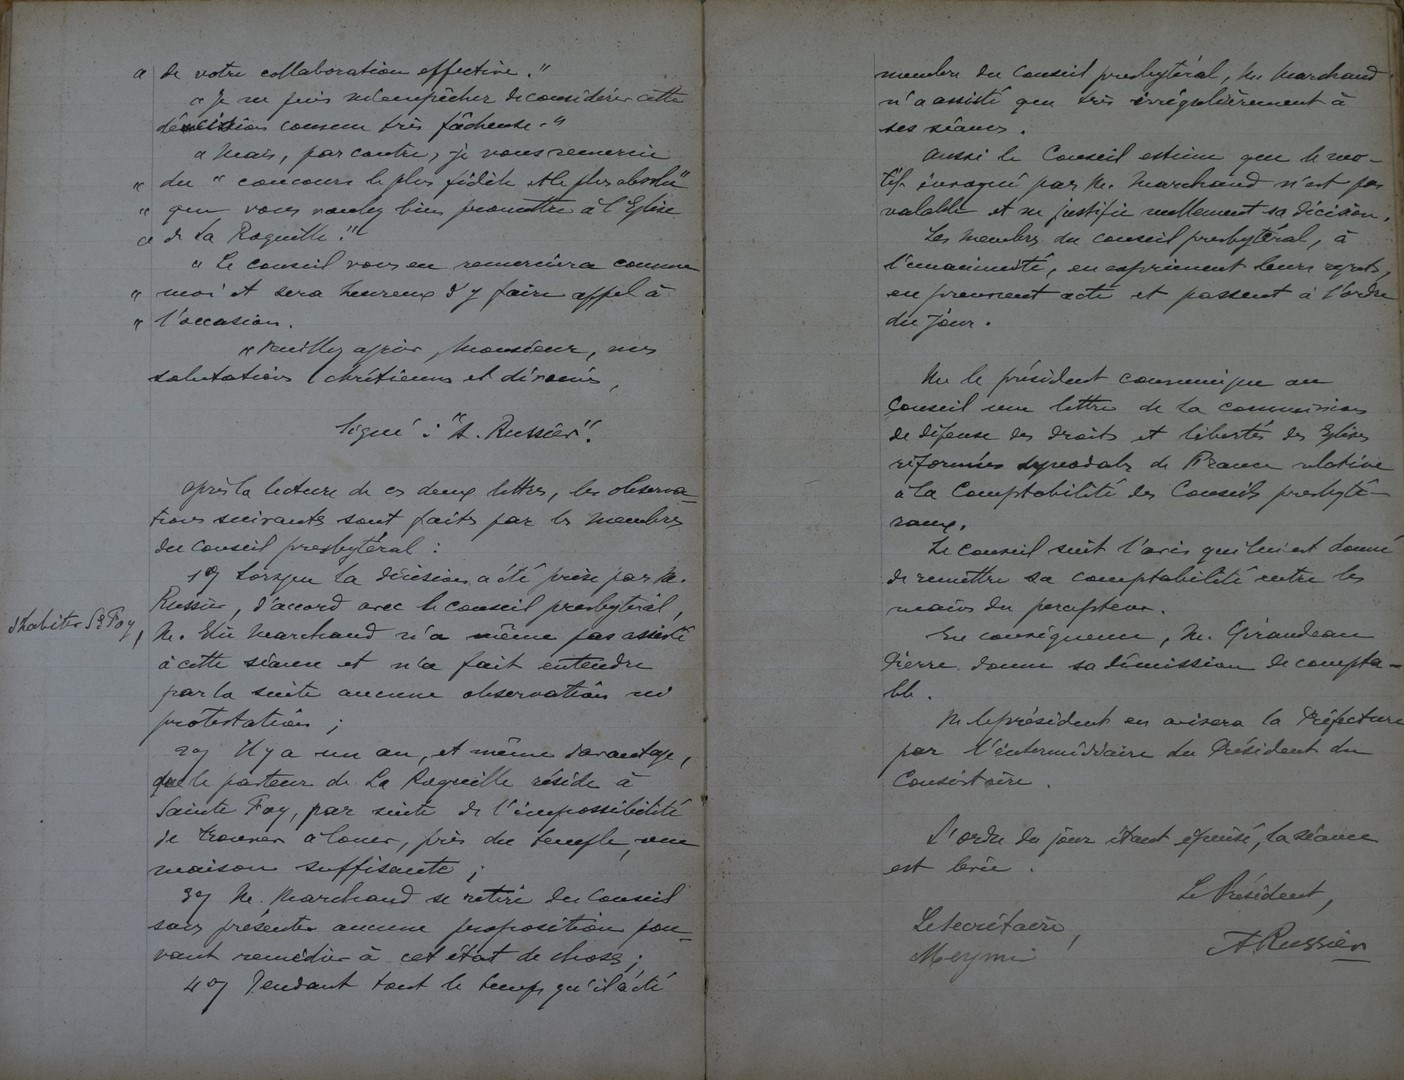 " de votre collaboration effective."
" Je ne puis m'empêcher de considérer cette
démission comme très fâcheuse."
" Mais, par contre, je vous remercie
" du " concours le plus fidèle et le plus absolu"
" que vous voulez bien promettre à l'Eglise
" de La Roquille."
" Le Conseil vous en remerciera comme
" moi et sera heureux d'y faire appel à
" l'occasion.
" Veuillez agréer, Monsieur, mes
salutations chrétiennes et dévoués,
Signé : "A. Russier".
Après la lecture de ces deux lettres, les observa-
tions suivantes sont faites par les membres
du Conseil presbytéral :
1°/ Lorsque la décision a été prise par M.
Russier, d'accord avec le Conseil presbytéral,
d'habiter Ste Foy,
M. Elie Marchand n'a même pas assisté
à cette séance et n'a fait entendre
par la suite aucune observation ni
protestation ;
2°/ Il y a un an, et même davantage,
que le pasteur de La Roquille réside à
Sainte Foy, par suite de l'impossibilité
de trouver à louer, près du temple, une
maison suffisante ;
3°/ M. Marchand se retire du Conseil
sans présenter aucune proposition pou-
vant remédier à cet état de choses ;
4°/ Pendant tout le temps qu'il a été
membre du Conseil presbytéral, M. Marchand
n'a assisté que très irrégulièrement à
ses séances.
Aussi le Conseil estime que le mo-
tif invoqué par M. Marchand n'est pas
valable et ne justifie nullement sa décision.
Les membres du conseil presbytéral, à
l'unanimité, en expriment leurs regrets,
en prennent acte et passent à l'ordre
du jour.
M. le président communique au
Conseil une lettre de la commission
de défense des droits et libertés des Eglises
réformées synodales de France relative
à la Comptabilité des Conseils presbyté-
raux.
Le conseil suit l'avis qui lui est donné
de remettre sa comptabilité entre les
mains du percepteur.
En conséquence, M. Giraudeau
Pierre donne sa démission de compta-
ble.
M. le président en avisera la Préfecture
par l'intermédiaire du Président du
Consistoire.
L'ordre du jour étant épuisé, la séance
est levée.
Le Président,
Le secrétaire,
A Russier